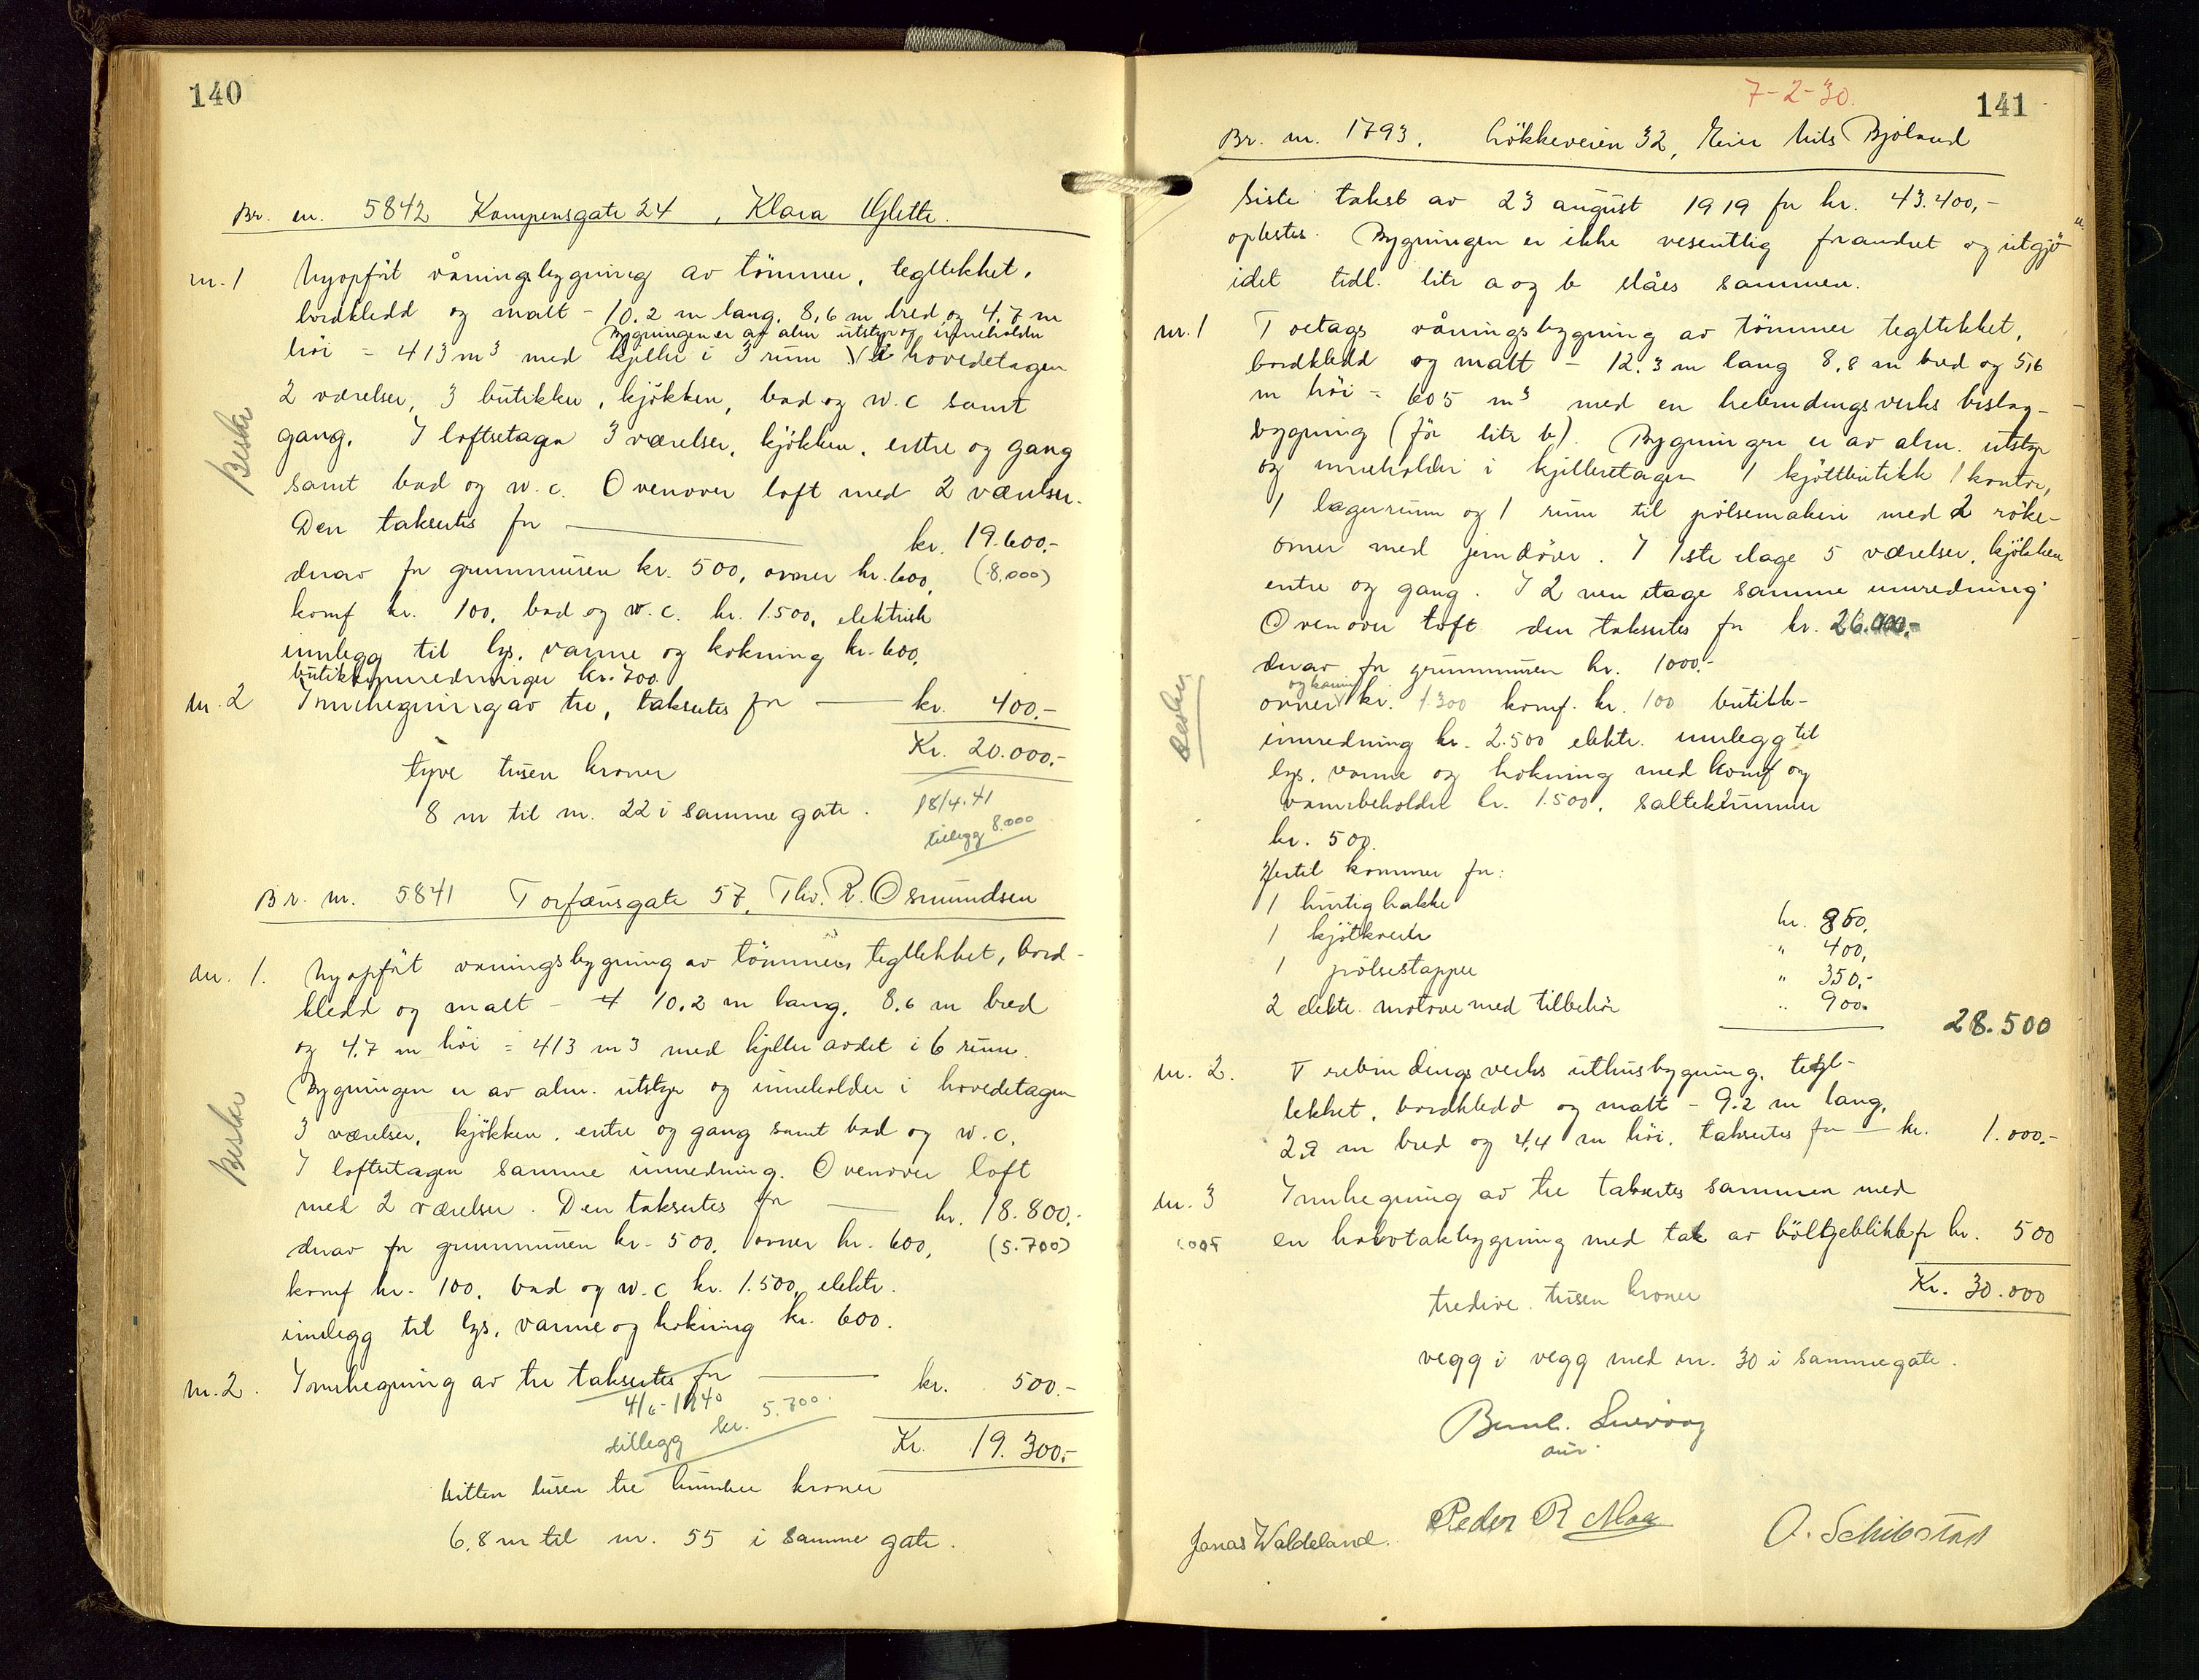 140
Br. nr. 5842 Kampensgate 24, Klara Oglette.
nr. 1 Nyopført våningsbygning av tömmer, tegltekket,
bordkledd og malt – 10,2 m lang, 8,6 m bred og 4,7 m
Bygningen er av alm utstyr og inneholder
höi = 413 m³ med kjeller i 3 rum i hovedetagen
2 værelser, 3 butikker, kjökken, bad og w.c samt
gang. I loftsetagen 3 værelser, kjökken, entre og gang
samt bad og w.c. Ovenover loft med 2 værelser.
Den taksertes for kr. 19.600,-
derav for grunnmuren kr. 500, ovner kr. 600, (8.000)
komf kr. 100, bad og w.c. kr. 1.500, elektrisk
innlegg til lys, varme og kokning kr. 600,
butikkinnredninger kr. 700.
nr. 2 Innhegning av tre, taksertes for kr. 400.-
Kr. 20.000,-
tyve tusen kroner
8 m til nr. 22 i samme gate.
18/4.41
tillegg 8.000
Besku
Br. nr. 5841 Torfæusgate 57, Thv. R. Osmundsen
nr. 1. Nyopført våningsbygning av tömmer, tegltekket, bord-
kledd og malt – 10,2 m lang, 8,6 m bred
og 4,7 m höi = 413 m³ med kjeller avdet i 6 rum.
Bygningen er av alm. utstyr og inneholder i hovedetagen
3 værelser, kjökken, entre og gang samt bad og w.c.
I loftsetagen samme innredning. Ovenover loft
med 2 værelser. Den taksertes for kr. 18.800,-
derav for grunnmuren kr. 500, ovner kr. 600, (5.700)
komf kr. 100, bad og w.c kr. 1.500, elektr.
innlegg til lys, varme og kokning kr. 600.
nr. 2. Innhegning av tre taksertes for kr. 500.-
4/6-1940
tillegg kr. 5.700.
Kr. 19.300,-
nitten tusen tre hundre kroner
6,8 m til nr. 55 i samme gate.
7-2-30.
141
Br. nr. 1793. Lökkeveien 32, Eier Nils Bjöland
Siste takst av 23 august 1919 for kr. 43.400,-
oplestes. Bygningen er ikke vesentlig forandret og utgjö-
idet tidl. litr a og b slåes sammen.
nr. 1 Toetags våningsbygning av tömmer tegltekket,
bordkledd og malt – 12,3 m lang 8,8 m bred og 5,6
m höi = 605 m³ med en trebindingsverks beslag-
bygning (för litr b). Bygningen er av alm. utstyr
og inneholder i kjelleretagen 1 kjöttbutikk 1 kontor,
1 lagerrum og 1 rum til pölsemakeri med 2 röke-
ovner med jerndörer. I 1ste etage 5 værelser, kjökken
entre og gang. I 2 nen etage samme innredning.
Ovenover loft den taksertes for kr. 26.000,-
derav for grunnmuren kr. 1000.-
ovner kr. 1.300 komf. kr. 100 butikk-
innredning kr. 2.500 elektr. innlegg til
lys, varme og kokning med komf og
varmbeholder kr. 1.500, saltekummer
kr. 500.
Hertil kommer for:
1 hurtighakke kr. 850,
1 kjötkvern " 400,
1 pölsestapper " 350,-
2 elektr. motore med tilbehör " 900.
28.500
nr. 2. Trebindingsverks uthusbygning, tegl-
tekket, bordkledd og malt – 9,2 m lang,
2,2 m bred og 4,4 m höi, taksertes for kr. 1.000,-
nr. 3 Innhegning av tre taksertes sammen med
en halvtakbygning med tak av bölgeblikk for kr. 500
Kr. 30.000
tredive tusen kroner
vegg i vegg med nr. 30 i samme gate.
Jonas Waldeland. Peder R Moe O. Schibstad